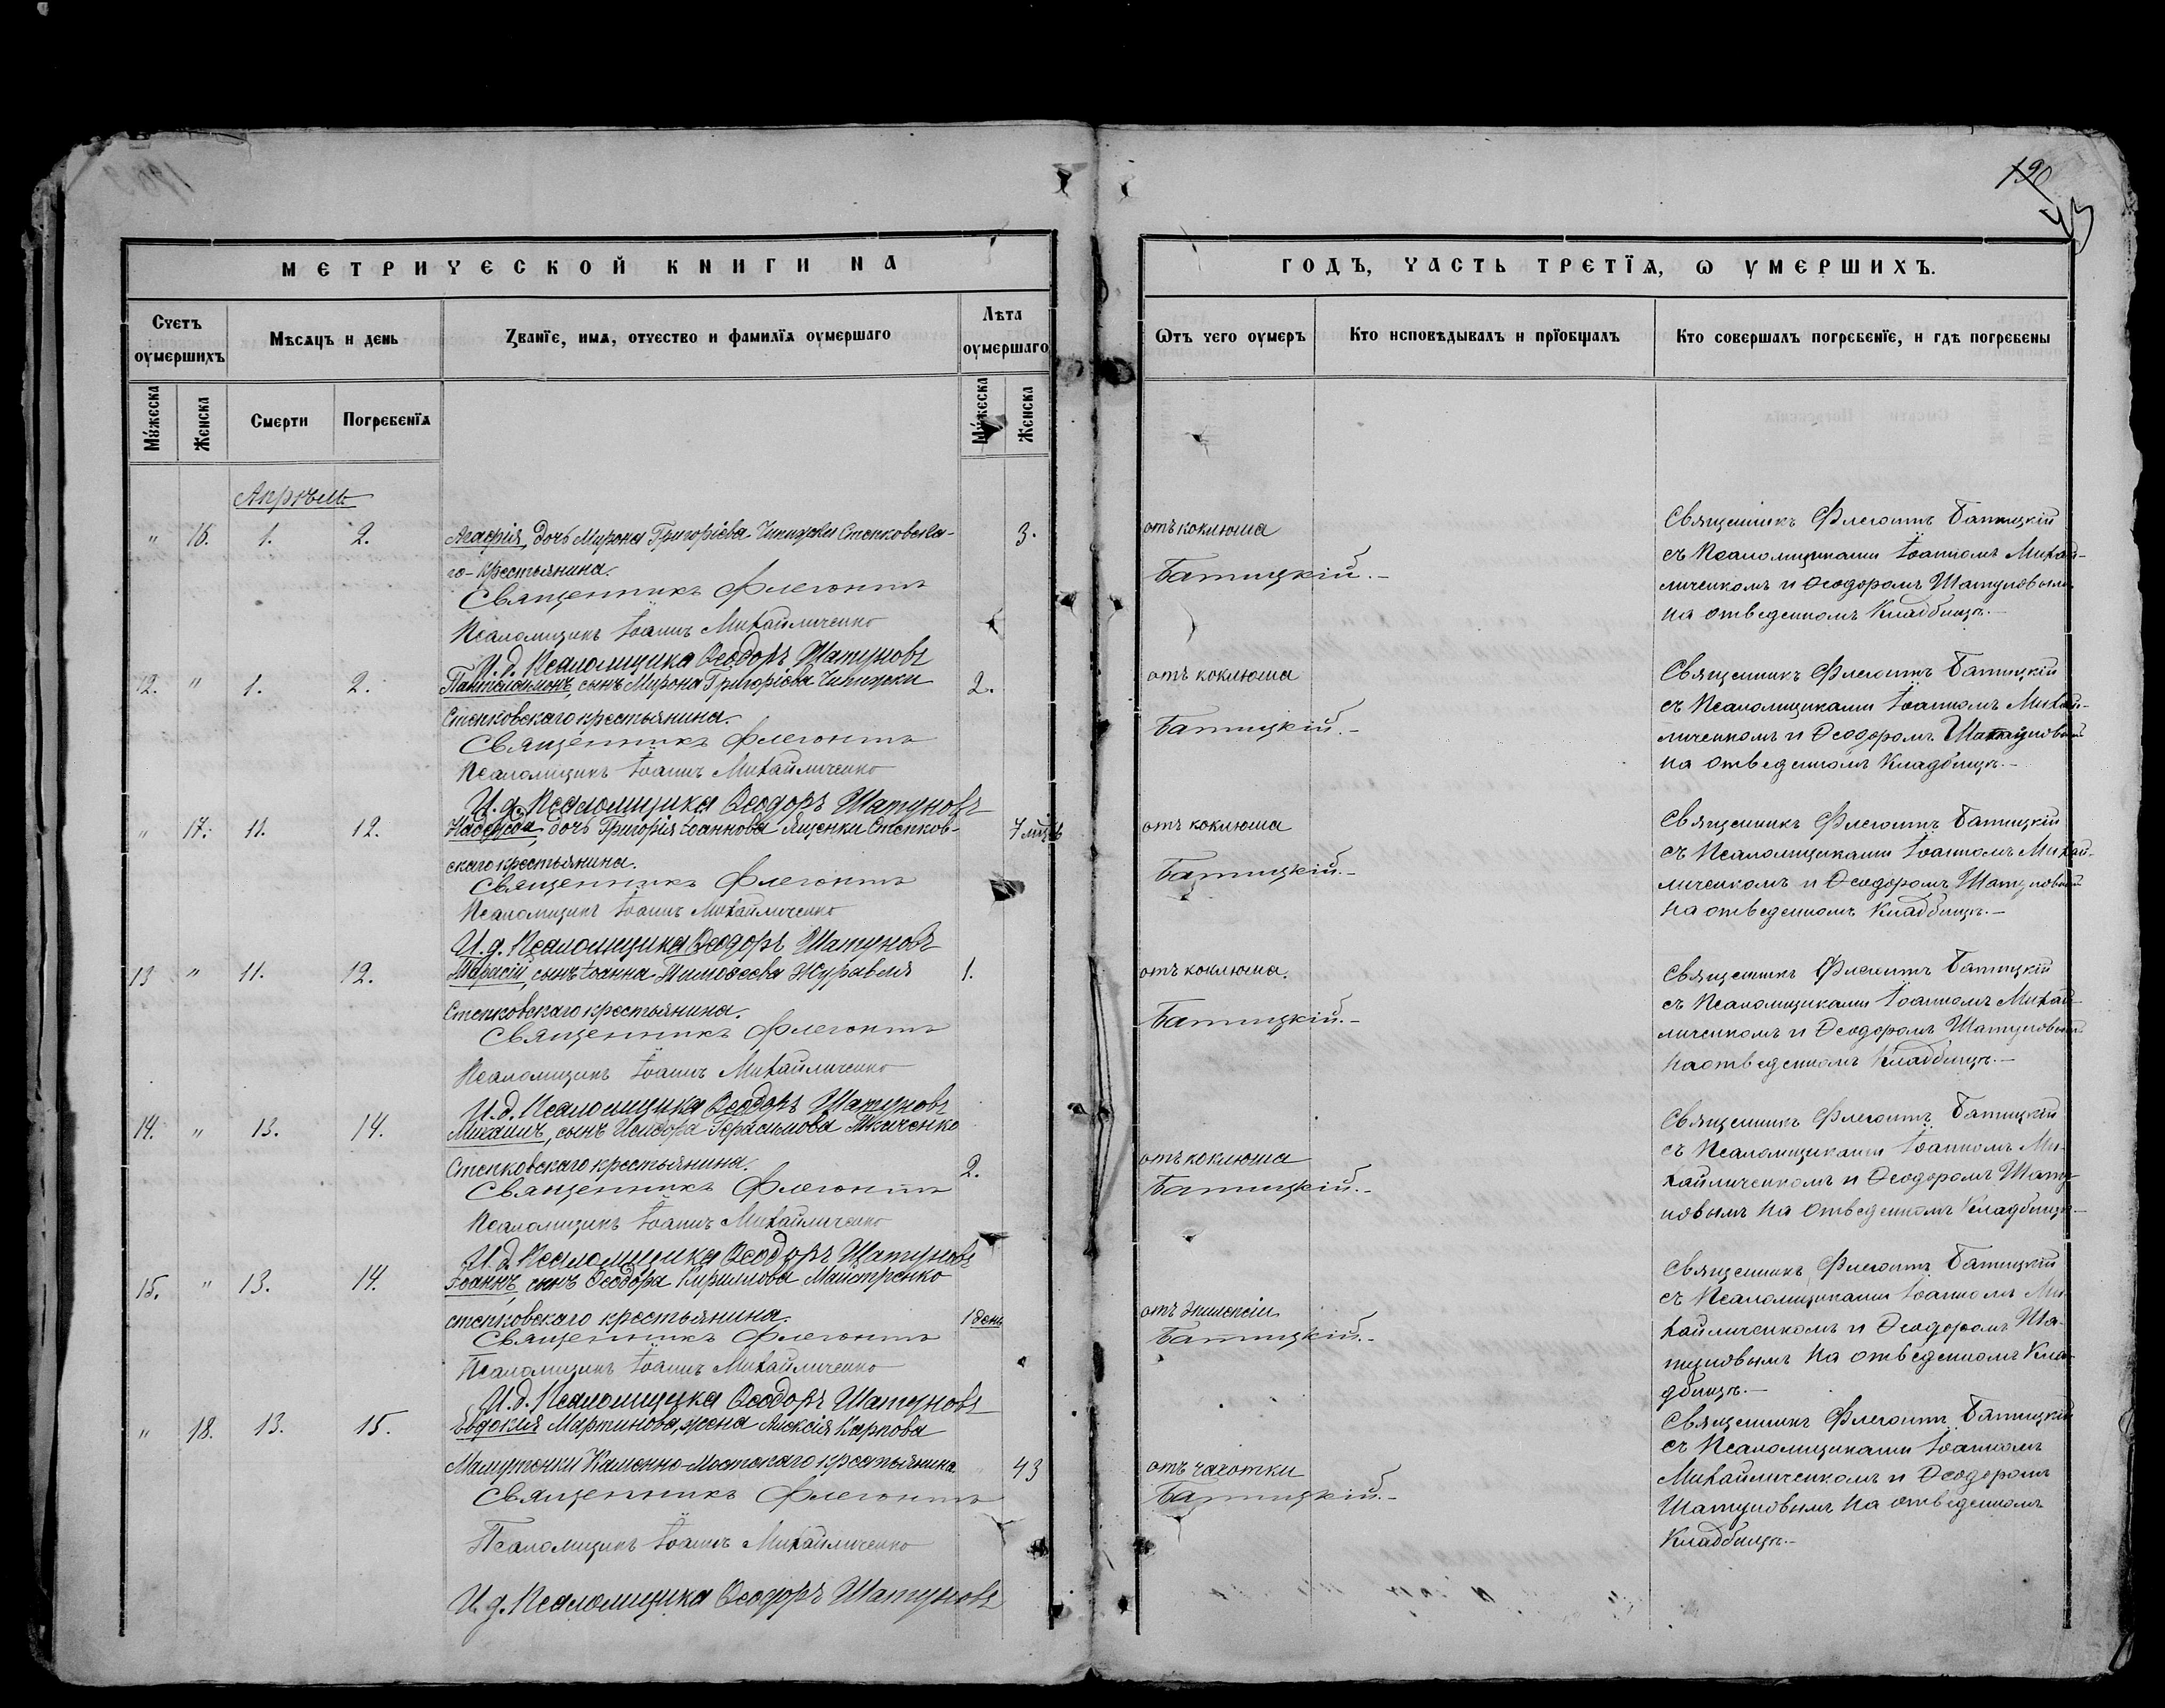 190
43
МЕТРИЧЕСКОЙ КНИГИ НА
ГОДЪ, ЧАСТЬ ТРЕТЇѦ, Ѡ УМЕРШИХЪ.
Счетъ оумершихъ
Мѣсѧцъ и день
Званїе, имѧ, отчество и фамилїѧ оумершаго
Лѣта оумершаго
Ѿтъ чего оумеръ
Кто исповѣдывалъ и прїобщалъ
Кто совершалъ погребенїе, и гдѣ погребены
Мꙋжеска
Женска
Смерти
Погребенїѧ
Мꙋжеска
Женска
Апрѣль
" 16. 1. 2. Агафія, дочь Мирона Григоріева Степковска- 3.
го-крестьянина.
Священникъ Флегонтъ
Псаломщикъ Іоаннъ Михайличенко
И.д. Псаломщика Ѳеодоръ Шатуновъ
отъ коклюша
Батицкій.-
Священникъ Флегонтъ Батицкій
съ Псаломщиками Іоанномъ Михай-
личенкомъ и Ѳеодоромъ Шатуновымъ
на отведенномъ Кладбищѣ.-
12. " 1. 2. Пантелеимонъ, сынъ Мирона Григоріева 2.
Степковскаго крестьянина.
Священникъ Флегонтъ
Псаломщикъ Іоаннъ Михайличенко
И.д. Псаломщика Ѳеодоръ Шатуновъ
отъ коклюша
Батицкій.-
Священникъ Флегонтъ Батицкій
съ Псаломщиками Іоанномъ Михай-
личенкомъ и Ѳеодоромъ Шатуновымъ
на отведенномъ Кладбищѣ.-
" 17. 11. 12. Надежда, дочь Григорія Іоаннова Яценки Степков- 7 мѣсяц
скаго крестьянина.
Священникъ Флегонтъ
Псаломщикъ Іоаннъ Михайличенко
И.д. Псаломщика Ѳеодоръ Шатуновъ
отъ коклюша
Батицкій.-
Священникъ Флегонтъ Батицкій
съ Псаломщиками Іоанномъ Михай-
личенкомъ и Ѳеодоромъ Шатуновымъ
на отведенномъ Кладбищѣ.-
13 " 11. 12. Тарасій, сынъ Іоанна Тимоѳеева Журавля 1.
Степковскаго крестьянина.
Священникъ Флегонтъ
Псаломщикъ Іоаннъ Михайличенко
И.д. Псаломщика Ѳеодоръ Шатуновъ
отъ коклюша.
Батицкій.-
Священникъ Флегонтъ Батицкій
съ Псаломщиками Іоанномъ Михай-
личенкомъ и Ѳеодоромъ Шатуновымъ
на отведенномъ Кладбищѣ.-
14. " 13. 14. Михаилъ, сынъ Исидора Герасимова Ткаченко
Степковскаго крестьянина. 2.
Священникъ Флегонтъ
Псаломщикъ Іоаннъ Михайличенко
И.д. Псаломщика Ѳеодоръ Шатуновъ
отъ коклюша
Батицкій.-
Священникъ Флегонтъ Батицкій
съ Псаломщиками Іоанномъ Ми-
хайличенкомъ и Ѳеодоромъ Шату-
новымъ на отведенномъ Кладбищѣ.-
15. " 13. 14. Іоаннъ, сынъ Ѳеодора Кириллова Майстренко
степковскаго крестьянина. 1 день
Священникъ Флегонтъ
Псаломщикъ Іоаннъ Михайличенко
И.д. Псаломщика Ѳеодоръ Шатуновъ
отъ эпилепсіи
Батицкій.-
Священникъ Флегонтъ Батицкій
съ Псаломщиками Іоанномъ Ми-
хайличенкомъ и Ѳеодоромъ Ша-
туновымъ на отведенномъ Кла-
дбищѣ.-
" 18. 13. 15. Евдокія Мартинова, жена Алексія Карпова
Каменно-Мостскаго крестьянина 43
Священникъ Флегонтъ
Псаломщикъ Іоаннъ Михайличенко
И.д. Псаломщика Ѳеодоръ Шатуновъ
отъ чахотки
Батицкій.-
Священникъ Флегонтъ Батицкій
съ Псаломщиками Іоанномъ
Михайличенкомъ и Ѳеодоромъ
Шатуновымъ на отведенномъ
Кладбищѣ.-